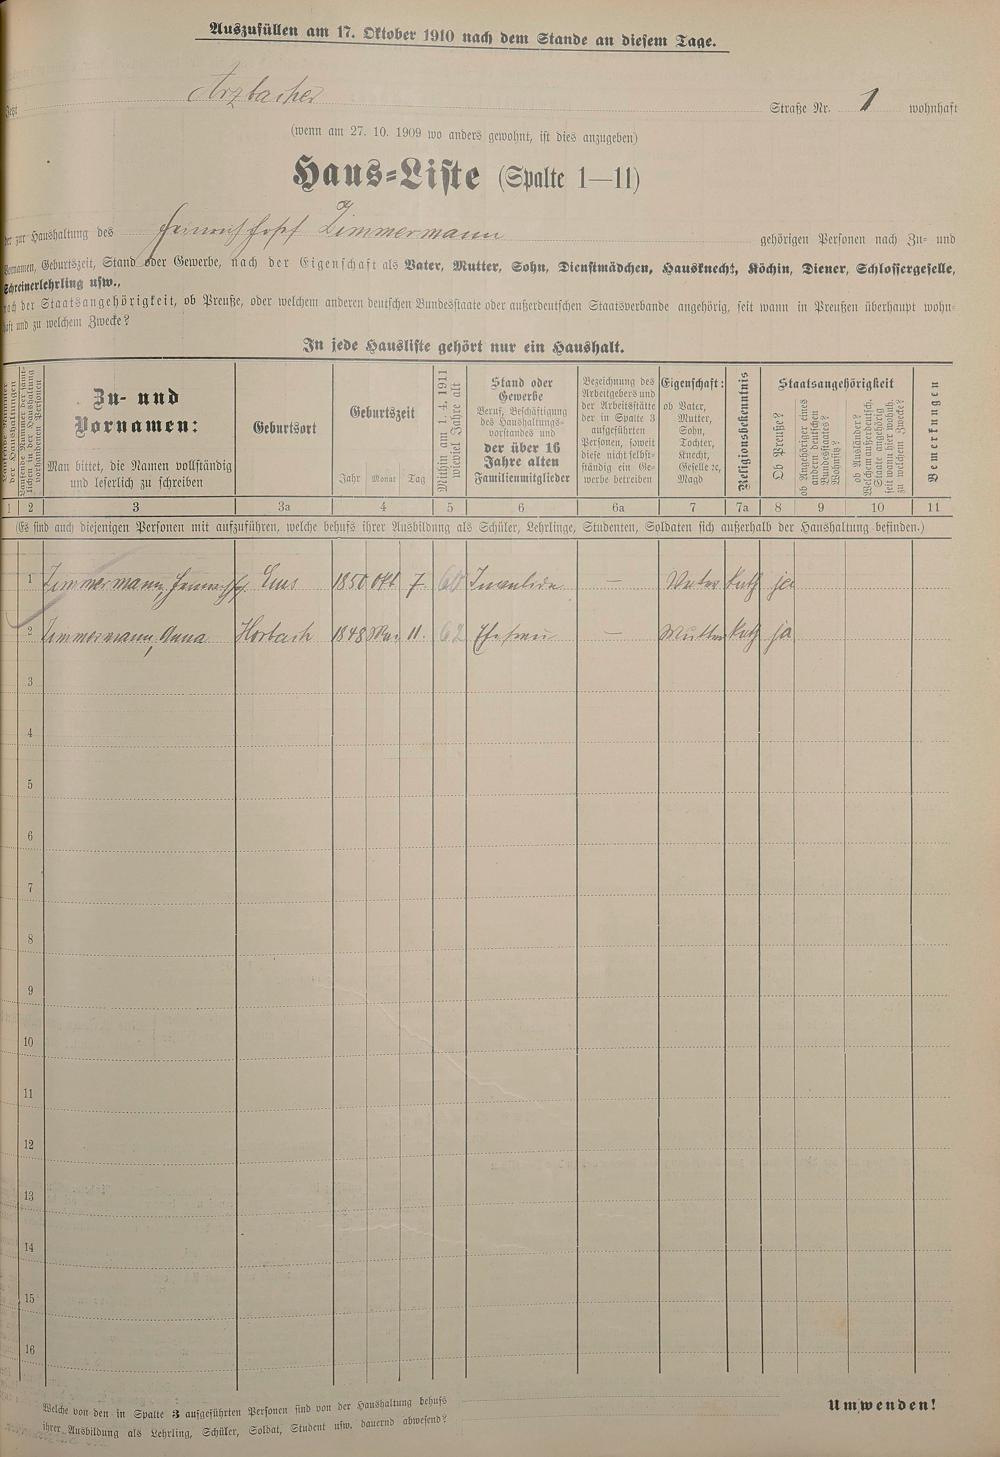 Auszufüllen am 17. Oktober 1910 nach dem Stande an diesem Tage.
Jetzt Arzbacher Straße Nr. 1 wohnhaft
(wenn am 27. 10. 1909 wo anders gewohnt, ist dies anzugeben)
Haus-Liste (Spalte 1—11)
der zur Haushaltung des Zimmermann gehörigen Personen nach Zu- und
Vornamen, Geburtszeit, Stand oder Gewerbe, nach der Eigenschaft als Vater, Mutter, Sohn, Dienstmädchen, Hausknecht, Köchin, Diener, Schlossergeselle,
Schreinerlehrling usw.,
nach der Staatsangehörigkeit, ob Preuße, oder welchem anderen deutschen Bundesstaate oder außerdeutschen Staatsverbande angehörig, seit wann in Preußen überhaupt wohn-
haft und zu welchem Zwecke?
In jede Hausliste gehört nur ein Haushalt.
der Haushaltungen
Laufende Nummer der sämt-
lichen in der Haushaltung
vorhandenen Personen
Zu- und
Vornamen:
Man bittet, die Namen vollständig
und leserlich zu schreiben
Geburtsort
Geburtszeit
Jahr Monat Tag
Mithin am 1. 4. 1911
wieviel Jahre alt
Stand oder
Gewerbe
Beruf, Beschäftigung
des Haushaltungs-
vorstandes und
der über 16
Jahre alten
Familienmitglieder
Bezeichnung des
Arbeitgebers und
der Arbeitsstätte
der in Spalte 3
aufgeführten
Personen, soweit
diese nicht selbst-
ständig ein Ge-
werbe betreiben
Eigenschaft:
ob Vater,
Mutter,
Sohn,
Tochter,
Knecht,
Geselle ec,
Magd
Religionsbekenntnis
Staatsangehörigkeit
Ob Preuße?
ob Angehöriger eines
andern deutschen
Bundesstaates?
Wohnsitz?
ob Ausländer?
Welchem außerdeutsch.
Staate angehörig
seit wann hier wohnh.
zu welchem Zwecke?
Bemerkungen
1 2 3 3a 4 5 6 6a 7 7a 8 9 10 11
(Es sind auch diejenigen Personen mit aufzuführen, welche behufs ihrer Ausbildung als Schüler, Lehrlinge, Studenten, Soldaten sich außerhalb der Haushaltung befinden.)
1 Zimmermann, Ems 1850 Okt 7. 60 Invalide — Vater Kath ja
2 Zimmermann, Anna Horbach 1848 11. 62 Ehefrau — Mutter Kath ja
3
4
5
6
7
8
9
10
11
12
13
14
15
16
Welche von den in Spalte 3 aufgeführten Personen sind von der Haushaltung behufs
ihrer Ausbildung als Lehrling, Schüler, Soldat, Student usw. dauernd abwesend?
Umwenden!